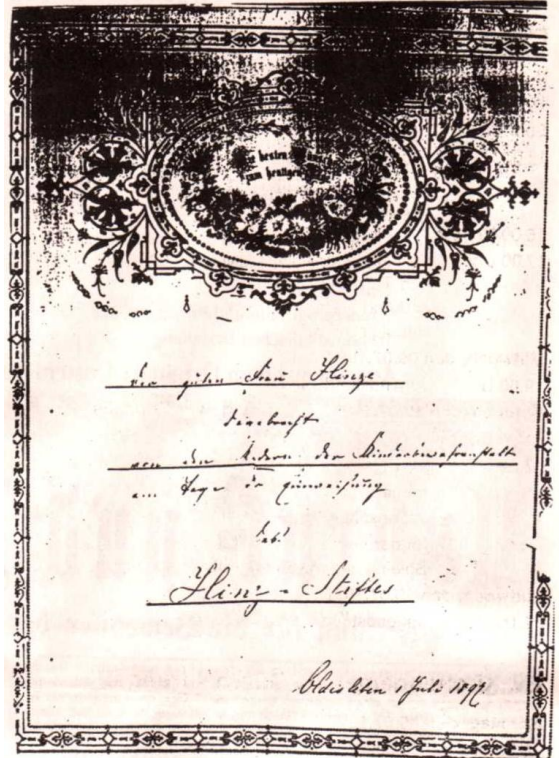 besten
zum heutigen
der guten Frau Hinze
dargebracht
von den Kindern der Kinderbewahranstalt
am Tage der Einweihung
des
Hinz-Stiftes
1 Juli 189